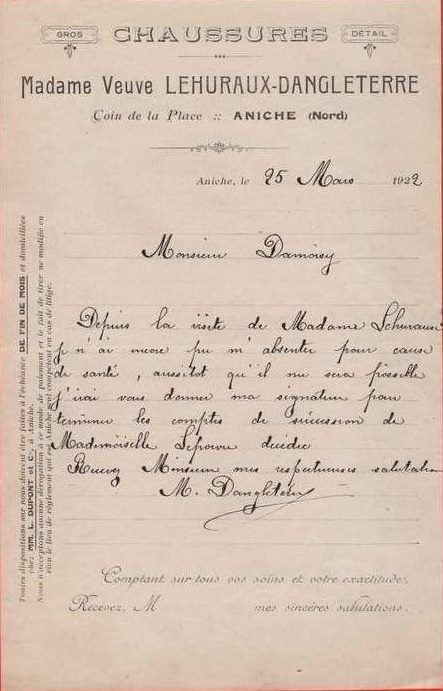 GROS CHAUSSURES DÉTAIL
Madame Veuve LEHURAUX-DANGLETERRE
Coin de la Place :: ANICHE (Nord)
Aniche, le 25 Mars 1922
Monsieur Damoisy
Depuis la visite de Madame Lehuraux
je n'ai encore pu m'absenter pour cause
de santé, aussitot qu'il me sera possible
j'irai vous donner ma signature pour
terminer les comptes de succession de
Mademoiselle décédée
Recevez Monsieur mes respectueuses salutation
M. Dangleterre
Comptant sur tous vos soins et votre exactitude,
Recevez, M mes sincères salutations.
Toutes dispositions sur nous doivent être faites à l'échéance DE FIN DE MOIS et domiciliées
chez MM. L. DUPONT et Cie, à Aniche.
Nous n'acceptons aucune dérogation à ce mode de paiement et le fait de tirer ne modifie en
rien le lieu de règlement qui est Aniche seul compétent en cas de litige.